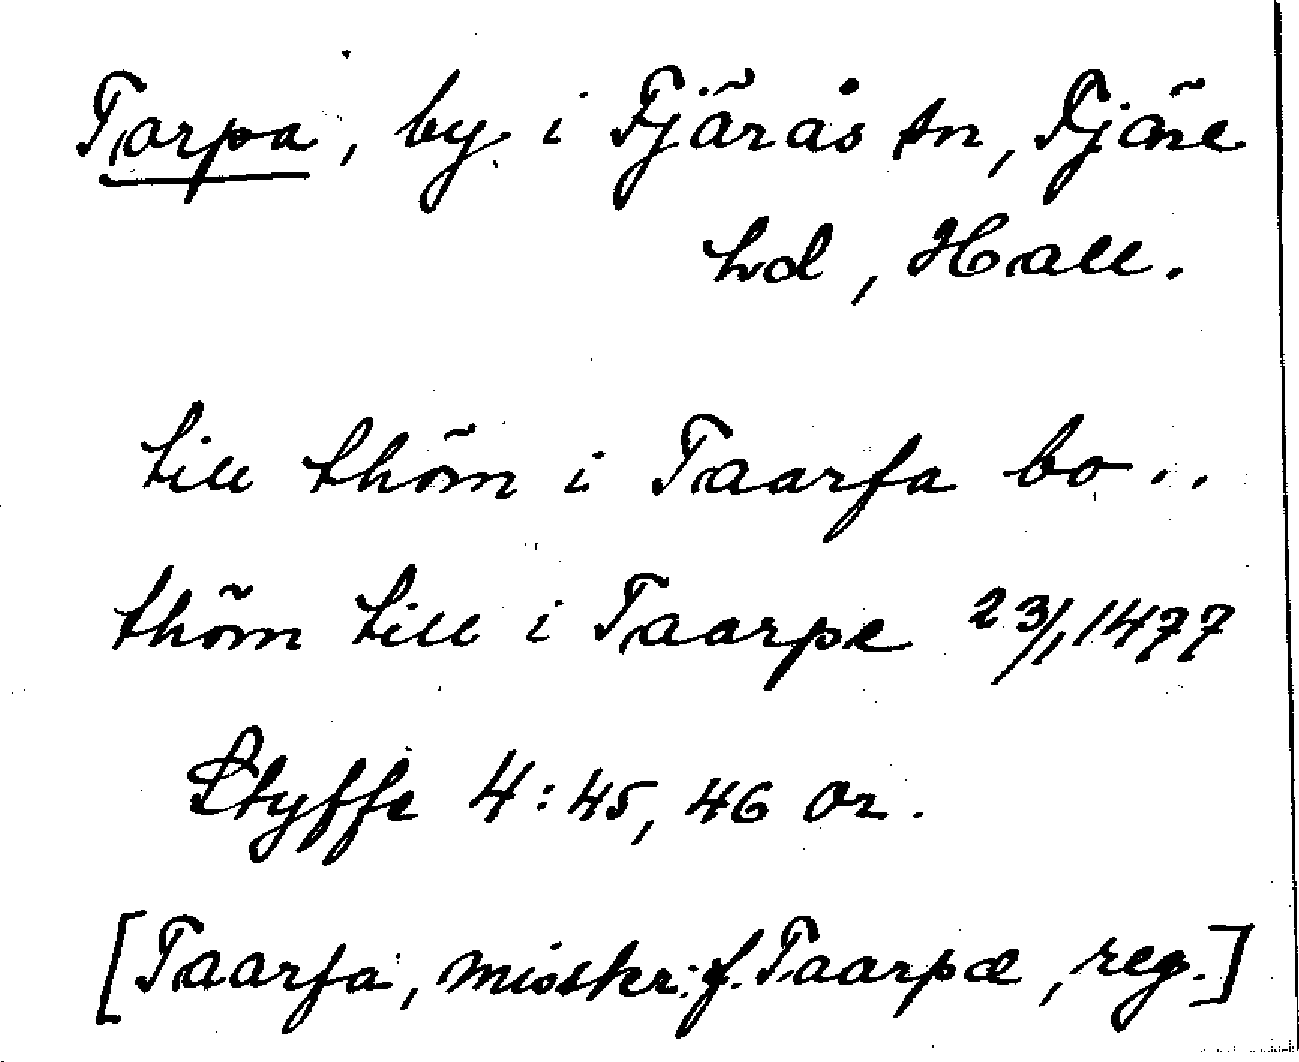 Torpa, by i Fjärås sn, Fjäre
hd, Hall.
till thöm i Taarfa bo..
thöm till i Taarpe 23/1 1477
Styffe 4:45, 46 or.
[Taarfa, misskr. f. Taarpæ, reg.]